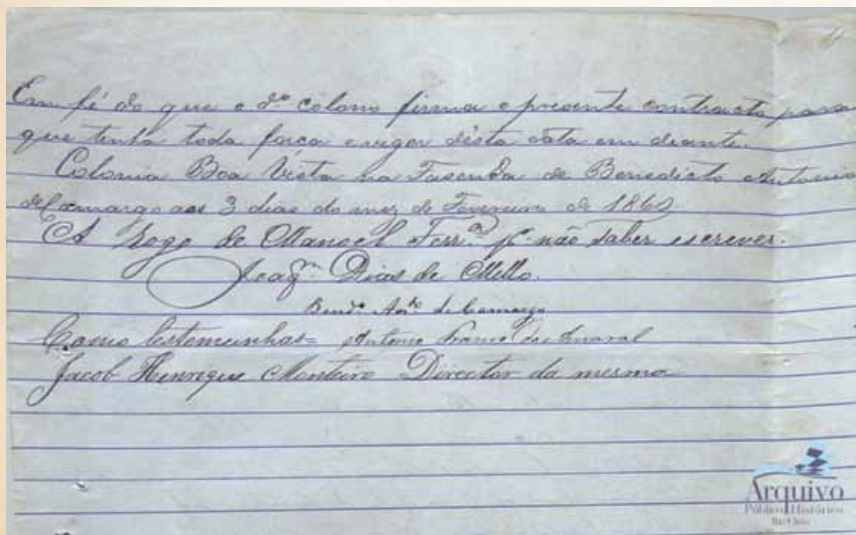 4
Em fé do que o dº colono firma o presente contracto para
que tenha toda força e vigor désta data em deante.
Colonia Boa Vista na Fasenda de Benedicto Antonio
de Camargo aos 3 dias do mez de Fevereiro de 1860
A Rogo de Manoel Ferrª pr não saber escrever.
Joaqm Dias de Mello.
Bendº Antº de Camargo
Como testemunhas = Antonio do Amaral
Jacob Henrique Monteiro Director da mesma
Arquivo
Público e Histórico
Rio Claro